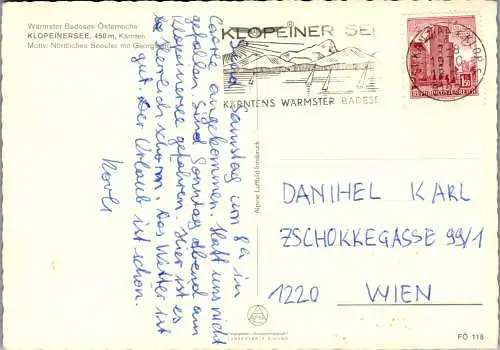 Wärmster Badesee Österreichs
KLOPEINERSEE, 450 m, Kärnten
Motiv: Nördliches Seeufer mit Georgi
KLOPEINER SEE
KÄRNTENS WÄRMSTER BADESEE
Samstag um 9h in
angekommen. Hatt uns nicht
gefallen. Sind Sonntag Abend am
Klopeinersee gefahren. Hier ist es
herrlich schön. Das Wetter ist
gut. Der Urlaub ist schön.
Karli
Alpine Luftbild Innsbruck
DANIHEL KARL
ZSCHOKKEGASSE 99/1
1220 WIEN
FÖ 118